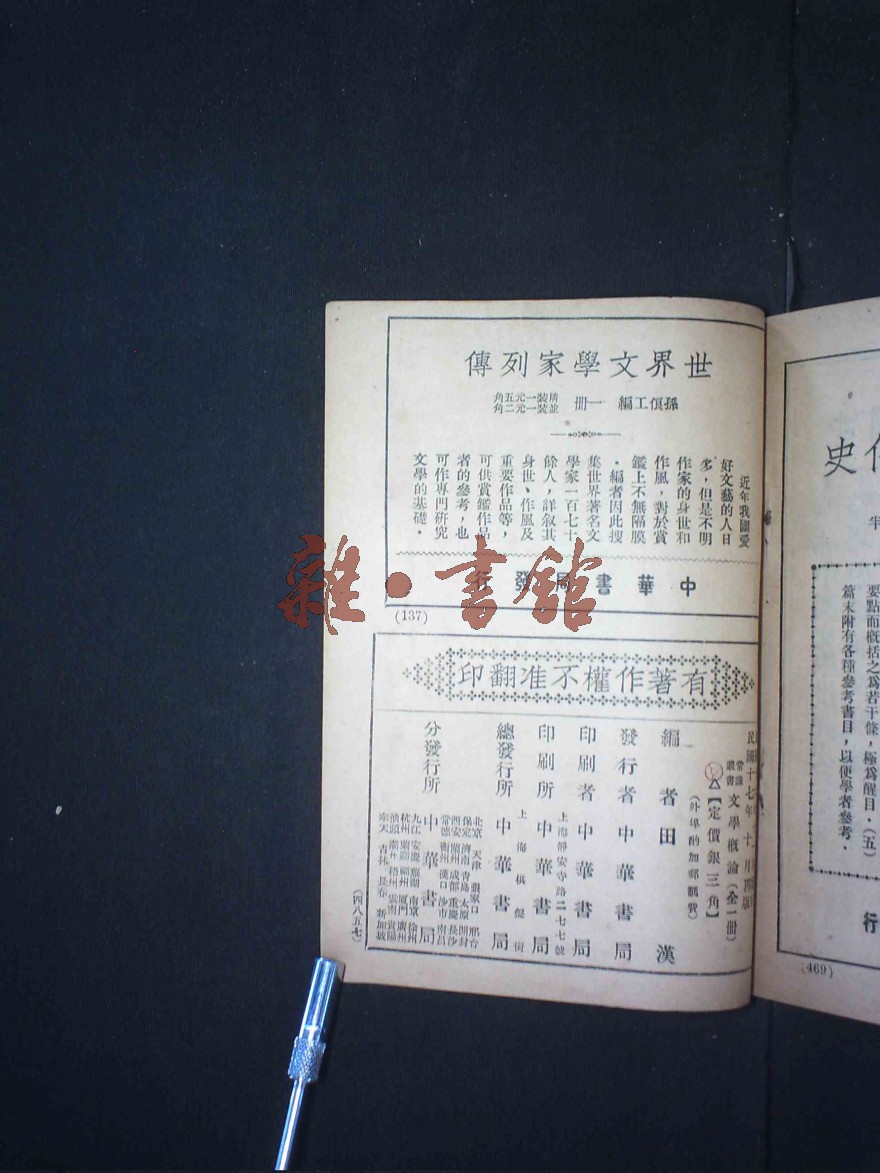 世界文學家列傳
孫俍工編 一冊 精裝一元五角 並裝一元二角
近年我國愛
好文藝的人日
多，但是不明
作家的身世和
作風，對於賞
鑑上不無隔膜
。編者因此搜
集世界著名文
學家一百七十
餘人，詳敘其
身世、作風及
重要作品等，
可供賞鑑作品
者的參考，也
可作專門研究
文學的基礎。
中華書局發行
(137)
雜·書館
有著作權不准翻印
民國十七年十月再版
常識叢書 文學概論（全一冊）
【定價銀三角】
（外埠酌加郵匯費）
編者 田漢
發行者 中華書局
印刷者 中華書局
上海靜安寺路二七七號
印刷所 中華書局
上海棋盤街
總發行所 中華書局
分發行所 中華書局
北京 天津 張家口 邢台
保定 濟南 青島 太原 開封
西安 蘭州 成都 重慶 長沙
常德 衡州 漢口 沙市 南昌
九江 安慶 蕪湖 南京 徐州
杭州 蘭谿 福州 廈門 廣州
汕頭 潮州 梧州 雲南 貴陽
奉天 吉林 長春 新加坡
（四八五七）
史
要點而概括之爲若干條，極爲醒目。（五）
篇末附有各種參考書目，以便學者參考。
行
(469)